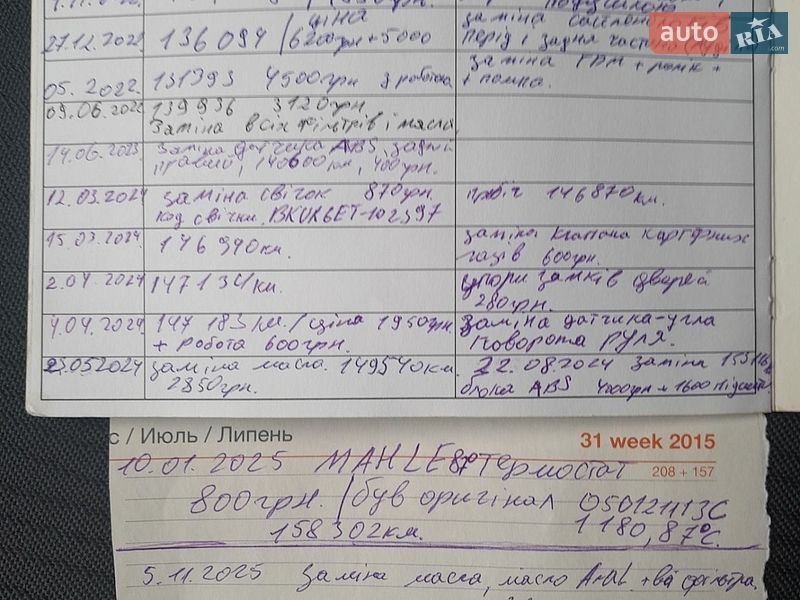 auto RIA .com
ціна
27.12.2022 136 094 / 6200грн+5000 перід і задня частина
заміна ГРМ + ролік +
05.2022 131393 4500грн з роботою + помпа.
09.06.2022 139936 3120грн
Заміна всіх фільтрів і масла
14.06.2023 заміна датчика ABS, задній
правий, 140600км, 400грн.
12.03.2024 заміна свічок 870грн пробіг 146870км.
код свічки, BKUR6ET-10 2397
15.03.2024 146 940км. заміна клапана картерних
газів 600грн.
2.04.2024 147134км. упори замків дверей
280грн.
4.04.2024 147 183 км./ціна 1950грн. заміна датчика-угла
+ робота 600грн. поворота руля.
23.05.2024 заміна масла. 149540км. 22.08.2024 заміна
2850грн. блока ABS 4000грн+1600
с / Июль / Липень 31 week 2015
208 + 157
10.01.2025 MAHLE 87 термостат
800грн. / був оригінал 050121113C
158302км. 1180, 87°C.
5.11.2025 заміна масла, масло +ва фільтра.